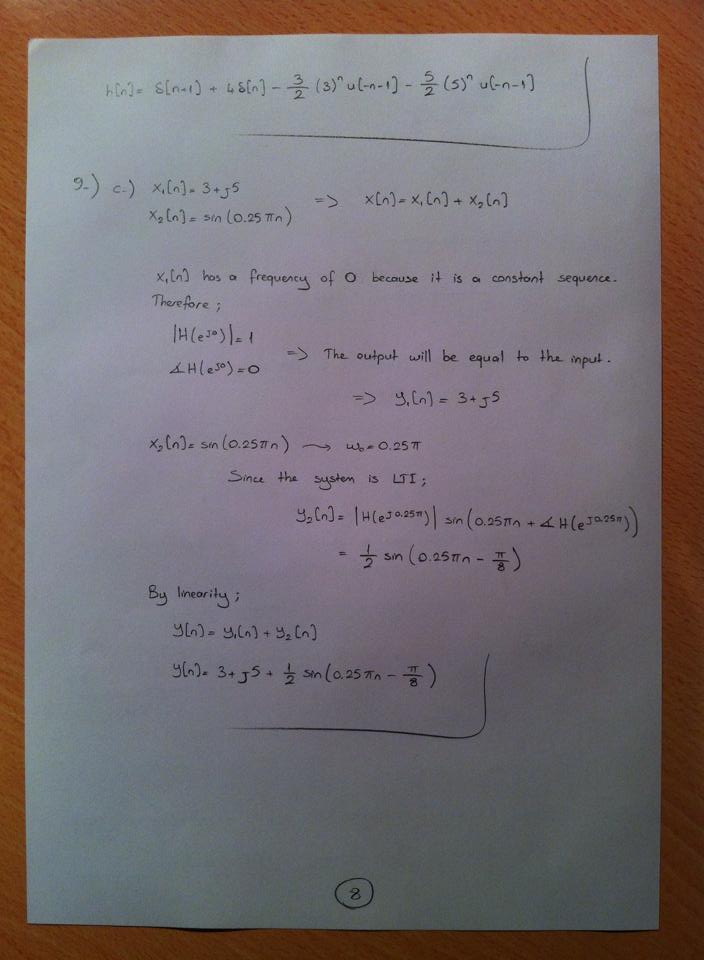 h[n]= δ[n+1] + 4δ[n] - 3/2 (3)ⁿ u[-n-1] - 5/2 (5)ⁿ u[-n-1]
9-) c-) x₁[n]= 3+j5
x₂[n]= sin(0.25πn)
=> x[n]= x₁[n] + x₂[n]
x₁[n] has a frequency of 0 because it is a constant sequence.
Therefore ;
|H(e^j0)|= 1
∡H(e^j0)=0
=> The output will be equal to the input.
=> y₁[n] = 3+j5
x₂[n]= sin(0.25πn) ⟿ ω₀=0.25π
Since the system is LTI ;
y₂[n]= |H(e^j0.25π)| sin(0.25πn + ∡H(e^j0.25π))
= 1/2 sin(0.25πn - π/8)
By linearity ;
y[n]= y₁[n] + y₂[n]
y[n]= 3+j5 + 1/2 sin(0.25πn - π/8)
8